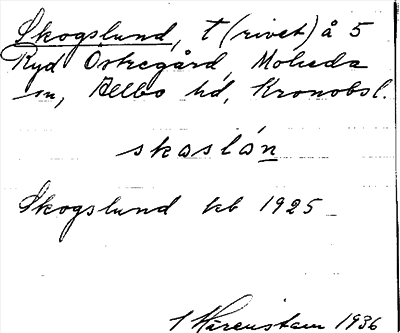 Skogslund, t(rivet) å 5
Ryd Östregård, Moheda
sn, Allbo hd, Kronobsl.
skɑslôn
Skogslund kb 1925
Härenstam 1936